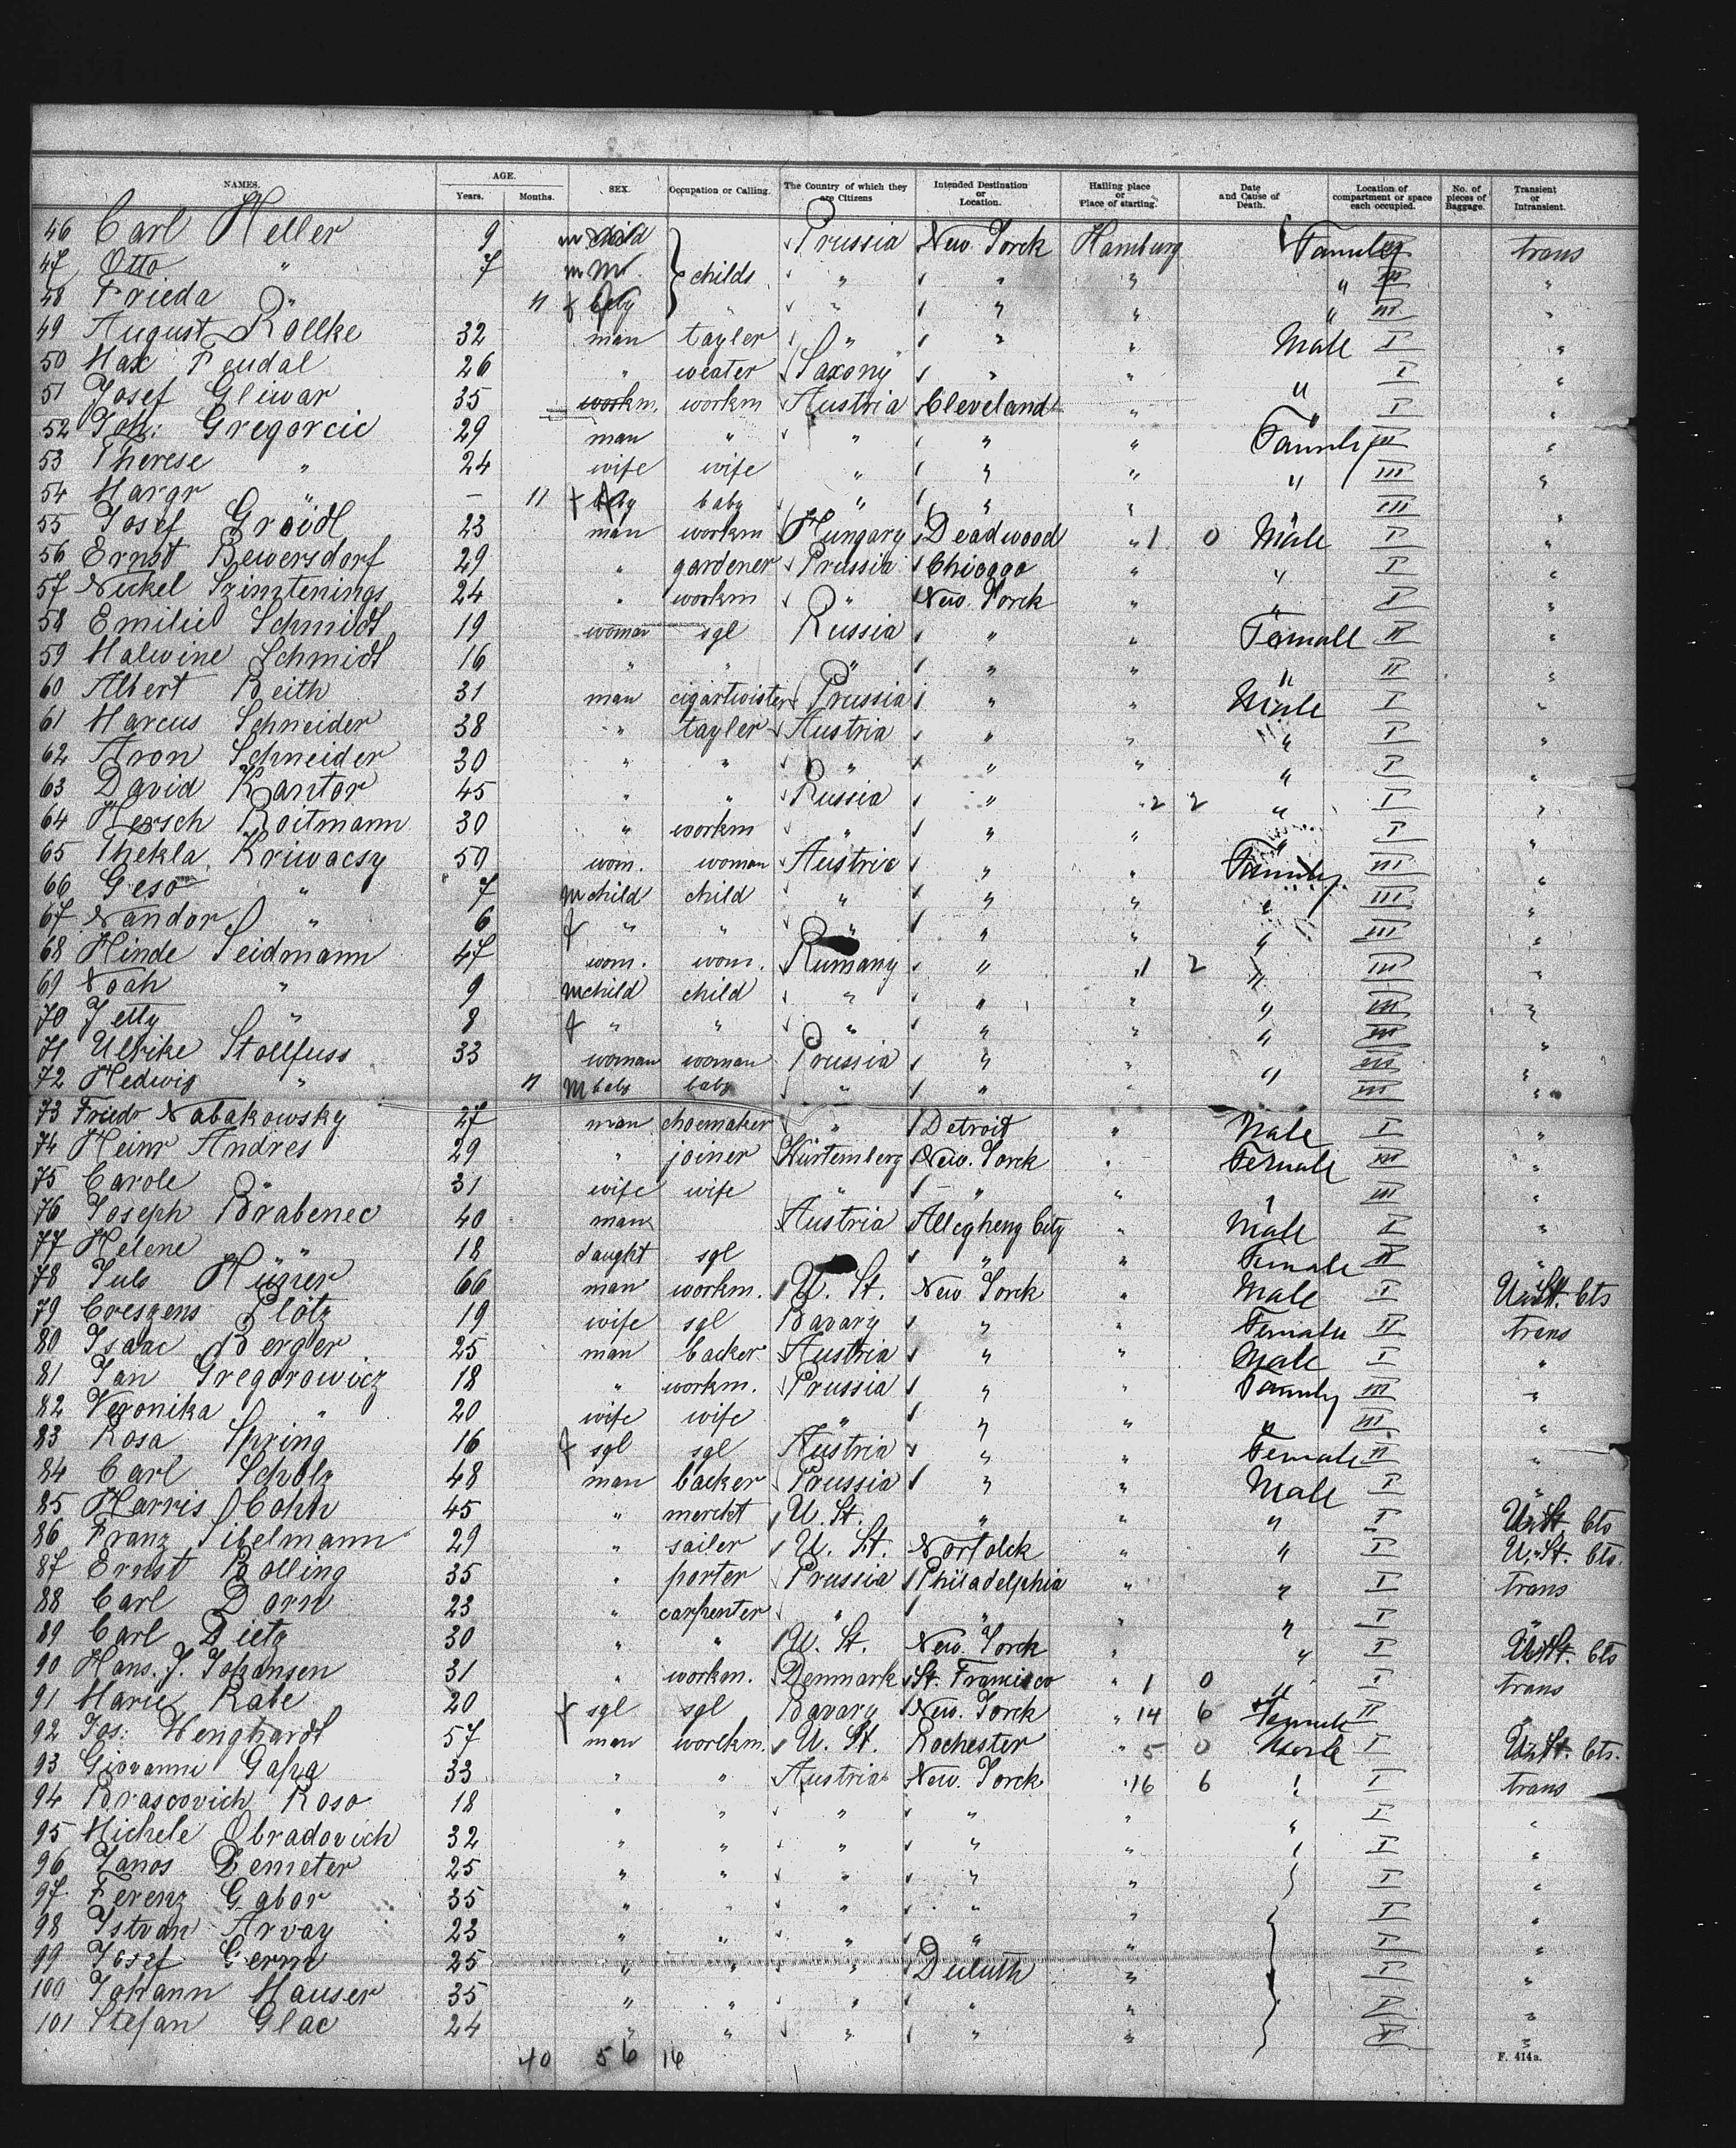 NAMES. AGE. Years. Months. SEX. Occupation or Calling. The Country of which they are Citizens Intended Destination or Location. Hailing place or Place of starting. Date and Cause of Death. Location of compartment or space each occupied. No. of pieces of Baggage. Transient or Intransient.
46 Carl Heller 9 m child Prussia New. Yorck Hamburg Family trans
47 Otto " 7 m childs " " " " III "
48 Frieda " 11 f baby " " " " " III "
49 August Rollke 32 man tayler " " " Male I "
50 Max Feudal 26 " weater Saxony " " " I "
51 Josef Gliwar 35 workm. workm Austria Cleveland " " I "
52 Joh: Gregorcic 29 man " " " " Family III "
53 Therese " 24 wife wife " " " " III "
54 Margr " - 11 f baby baby " " " " III "
55 Josef Groidl 23 man workm Hungary Deadwood " 1 0 Male I "
56 Ernst Bewersdorf 29 " gardener Prussia Chicago " " I "
57 Nickel Szimtenings 24 " workm " New. Yorck " " I "
58 Emilie Schmidt 19 woman sgl Russia " " Female II "
59 Malwine Schmidt 16 " " " " " " II "
60 Albert Beith 31 man cigartwister Prussia " " Male I "
61 Marcus Schneider 38 " tayler Austria " " " I "
62 Aron Schneider 30 " " " " " " I "
63 David Kantor 45 " " Russia " " 2 2 " I "
64 Hersch Roitmann 30 " workm " " " " I "
65 Thekla Kriwacsy 59 wom. woman Austria " " Family III "
66 Geso " 7 m child child " " " " III "
67 Nandor " 6 f " " " " " " III "
68 Hinde Seidmann 47 wom. wom. Rumany " " 1 2 " III "
69 Noah " 9 m child child " " " " III "
70 Jetty " 8 f " " " " " " III "
71 Ulrike Stollfuss 33 woman woman Prussia " " " III "
72 Hedwig " 11 m baby baby " " " III "
73 Friedr Nabakowsky 27 man choemaker " Detroit " Male I "
74 Heinr Andres 29 " joiner Würtemberg New. Yorck " Female III "
75 Carole " 31 wife wife " " " " III "
76 Joseph Brabenec 40 man Austria Allegheny City " Male I "
77 Helene " 18 daught sgl " " Female II "
78 Juls 66 man workm. U. St. New Yorck " Male I U. St. Cts
79 Creszens Plötz 19 wife sgl Bavary " " Female II trans
80 Isaac Bergler 25 man backer Austria " " Male I "
81 Jan Gregorowicz 18 " workm. Prussia " " Family III "
82 Veronika " 20 wife wife " " " " III "
83 Rosa Spring 16 f sgl sgl Austria " " Female II "
84 Carl Scholz 48 man backer Prussia " " Male I "
85 Harris Cohn 45 " merckt U. St. " " " I U. St. Cts
86 Franz Sibelmann 29 " sailer U. St. Norfolck " " I U. St. Cts.
87 Ernst Bolling 35 " porter Prussia Philadelphia " " I trans
88 Carl Dorn 23 " carpenter " " " " I "
89 Carl Dietz 30 " " U. St. New. Yorck " " I U. St. Cts
90 Hans. J. Johansen 31 " workm. Denmark St. Francisco " 1 0 " I trans
91 Marie Rabe 20 f sgl sgl Bavary New. Yorck " 14 6 Female II "
92 Jos: Wenghardt 57 man worckm. U. St. Rochester " 5 0 Male I U. St. Cts.
93 Giovanni Gapa 33 " " Austria New. Yorck " 16 6 " I trans
94 Brascovich Roso 18 " " " " " " I "
95 Michele Obradovich 32 " " " " " " I "
96 Janos Demeter 25 " " " " " I "
97 Ferenz Gabor 35 " " " " " I "
98 Istvan Arvay 23 " " " " " I "
99 Josef Germ 25 " " " Duluth " I "
100 Johann Hauser 35 " " " " " I "
101 Stefan Glac 24 " " " " " I "
10 56 16 F. 414a.